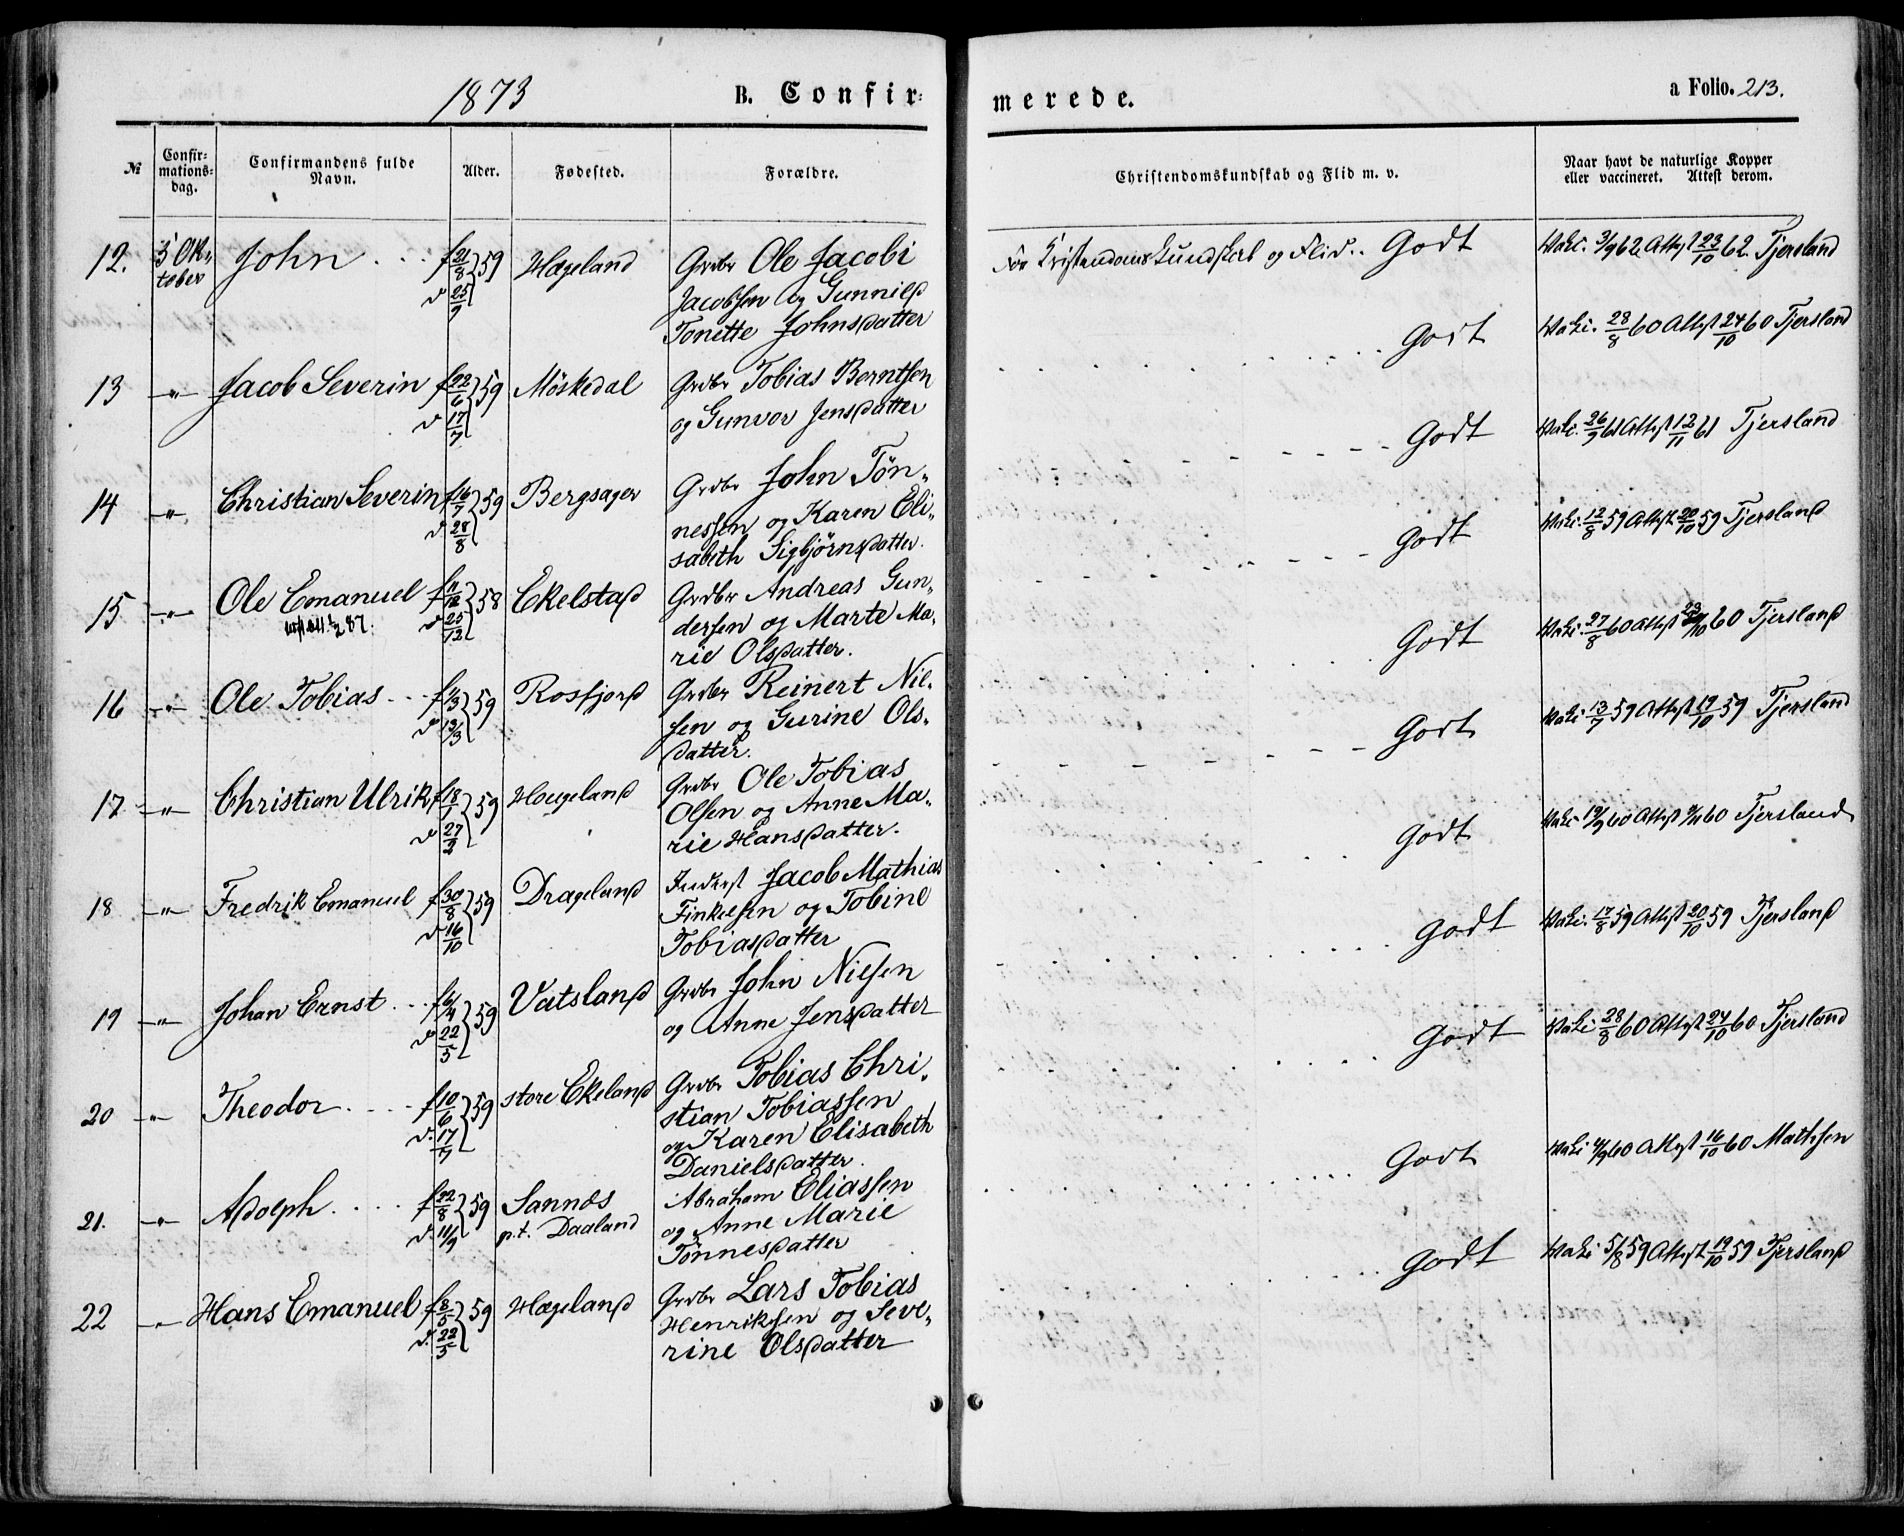 1873
B. Confir-
merede.
a Folio. 213.
№
Confir-
mations-
dag.
Confirmandens fulde
Navn.
Alder.
Fødested.
Forældre.
Christendomskundskab og Flid m. v.
Naar havt de naturlige Kopper
eller vaccineret. Attest derom.
12. 5 Ok- John f 21/8 59 Hægeland Grdbr Ole Jacobi
tober d 25/9 Jacobsen og Gunnild
Tonette Johnsdatter
For Kristendomskundskab og Flid.. Godt Vaki. 3/9 62 Attest 23/10 62. Tjersland
13 -"- Jacob Severin f 22/6 59 Møskedal Grdbr Tobias Berntsen
d 17/7 og Gunvor Jensdatter
Godt Vaki. 28/8 60 Attest 24/10 60 Tjersland
14 -"- Christian Severin f 16/7 59 Bergsager Grdbr John Tøn-
d 28/8 nessen og Karen Eli-
sabeth Sigbjørnsdatter.
Godt Vaki. 26/9 61 Attest 12/11 61 Tjersland
15 -"- Ole Emanuel f 11/12 58 Ekelstad Grdbr Andreas Gun-
287. d 25/12 dersen og Marte Ma-
rie Olsdatter.
Godt Vaki. 12/8 59 Attest 20/10 59 Tjersland
16 -"- Ole Tobias f 1/3 59 Rosfjord Grdbr Reinert Niel-
d 13/3 sen og Gurine Ols-
datter.
Godt Vaki. 27/8 60 Attest 23/10 60 Tjersland
17 -"- Christian Ulrik f 18/1 59 Hougeland Grdbr Ole Tobias
d 27/2 Olsen og Anne Ma-
rie Hansdatter.
Godt Vaki. 13/7 59 Attest 19/10 59 Tjersland
18 -"- Fredrik Emanuel f 30/8 59 Drageland Inderst Jacob Mathias
d 16/10 Finkelsen og Tobine
Tobiasdatter
Godt Vaki. 19/9 60 Attest 60 Tjersland
19 -"- Johan Ernst f 6/4 59 Vatsland Grdbr John Nielsen
d 22/5 og Anne Jensdatter
Godt Vaki. 17/8 59 Attest 20/10 59 Tjersland
20 -"- Theodor f 10/6 59 store Ekeland Grdbr Tobias Chri-
d. 17/7 stian Tobiassen
og Karen Elisabeth
Danielsdatter.
Godt Vaki 28/8 60 Attest 24/10 60 Tjersland
21. -"- Adolph f 22/8 59 Sannæs Abraham Eliassen
d. 11/9 p.t. Daaland og Anne Marie
Tønnesdatter
Godt Vaki 4/9 60 Attest 16/10 60 Mathsen
22 -"- Hans Emanuel f 8/5 59 Hægeland Grdbr Lars Tobias
d. 22/5 Henriksen og Seve-
rine Olsdatter
Godt Vaki 5/8 59 Attest 19/10 59 Tjersland